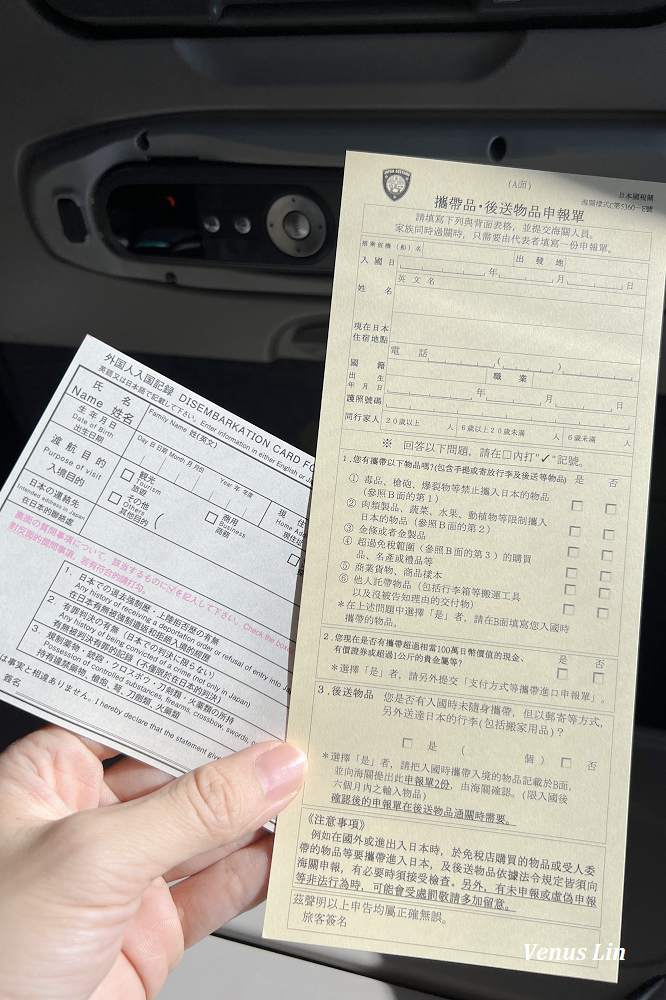 外国人入国記録 DISEMBARKATION CARD FO
英語又は日本語で記載して下さい。Enter information in either English or Ja
氏 名
Name 姓名
Family Name 姓(英文)
生 年 月 日
Date of Birth
出生日期
Day 日 日期 Month 月 月份 Year 年 年度
現 住
Home Addr
現住址
渡 航 目 的
Purpose of visit
入境目的
観光
Tourism
旅遊
商用
Business
商務
その他
Others
其他目的
日本の連絡先
Intended address in Japan
在日本的聯絡處
裏面の質問事項について、該当するものに☑を記入して下さい。Check the boxes
對反面的提問事項、若有符合的請打勾。
1. 日本での退去強制歴・上陸拒否歴の有無
Any history of receiving a deportation order or refusal of entry into Ja
在日本有無被強制遣返和拒絕入境的經歷
2. 有罪判決の有無（日本での判決に限らない）
Any history of being convicted of a crime (not only in Japan)
有無被判決有罪的記録（不僅限於在日本的判決）
3. 規制薬物・銃砲・クロスボウ・刀剣類・火薬類の所持
Possession of controlled substances, firearms, crossbow, swords,
持有違禁藥物、槍炮、弩、刀劍類、火藥類
は事実と相違ありません。I hereby declare that the statement give
簽名
JAPAN CUSTOMS
(A面)
日本國稅關
海關樣式C第5360－E號
攜帶品・後送物品申報單
請填寫下列與背面表格，並提交海關人員。
家族同時過關時，只需要由代表者填寫一份申報單。
搭乘班機（船）名
出 發 地
入 國 日
年 月 日
姓 名
英 文 名
現在日本
住宿地點
電 話 ( )
國 籍
職 業
出 生
年 月 日
年 月 日
護照號碼
同行家人
２０歲以上 人 ６歲以上２０歲未滿 人 ６歲未滿 人
※ 回答以下問題，請在□內打"✓"記號。
1.您有攜帶以下物品嗎?(包含手提或寄放行李及後送等物品)
是 否
① 毒品、槍砲、爆裂物等禁止攜入日本的物品
（參照Ｂ面的第１）
② 肉類製品、蔬菜、水果、動植物等限制攜入
日本的物品（參照Ｂ面的第２）
③ 金條或者金製品
④ 超過免稅範圍（參照Ｂ面的第３）的購買
品、名產或禮品等
⑤ 商業貨物、商品樣本
⑥ 他人託帶物品（包括行李箱等搬運工具
以及沒被告知理由的交付物）
＊在上述問題中選擇「是」者，請在B面填寫您入國時
攜帶的物品。
2.您現在是否有攜帶超過相當100萬日幣價值的現金、
有價證券或超過1公斤的貴金屬等?
是 否
＊選擇「是」者，請另外提交「支付方式等攜帶進口申報單」。
3.後送物品 您是否有入國時未隨身攜帶，但以郵寄等方式，
另外送達日本的行李(包括搬家用品)?
□ 是 ( 個 ) □ 否
＊選擇「是」者，請把入國時攜帶入境的物品記載於B面，
並向海關提出此申報單2份，由海關確認。(限入國後
六個月內之輸入物品)
確認後的申報單在後送物品通關時需要。
《注意事項》
例如在國外或進出入日本時，於免稅店購買的物品或受人委
帶的物品等要攜帶進入日本，及後送物品依據法令規定皆須向
海關申報，有必要時須接受檢查。另外，有未申報或虛偽申報
等非法行為時，可能會受處罰敬請多加留意。
茲聲明以上申告均屬正確無誤。
旅客簽名
Venus Lin